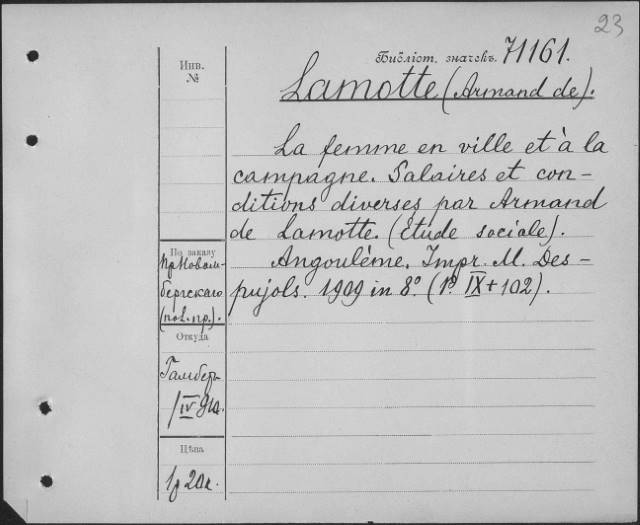 23
Библіот. значекъ. 71161.
Инв.
№
Lamotte (Armand de).
La femme en ville et à la
campagne. Salaires et con-
ditions diverses par Armand
de Lamotte. (Étude sociale).
Angoulème. Impr. M. Des-
pujols. 1909 in 8º. (1º. IX + 102).
По заказу
пр Новом-
бергскаго
Откуда
Гамберъ
/IV 910.
Цѣна
1р 20к.